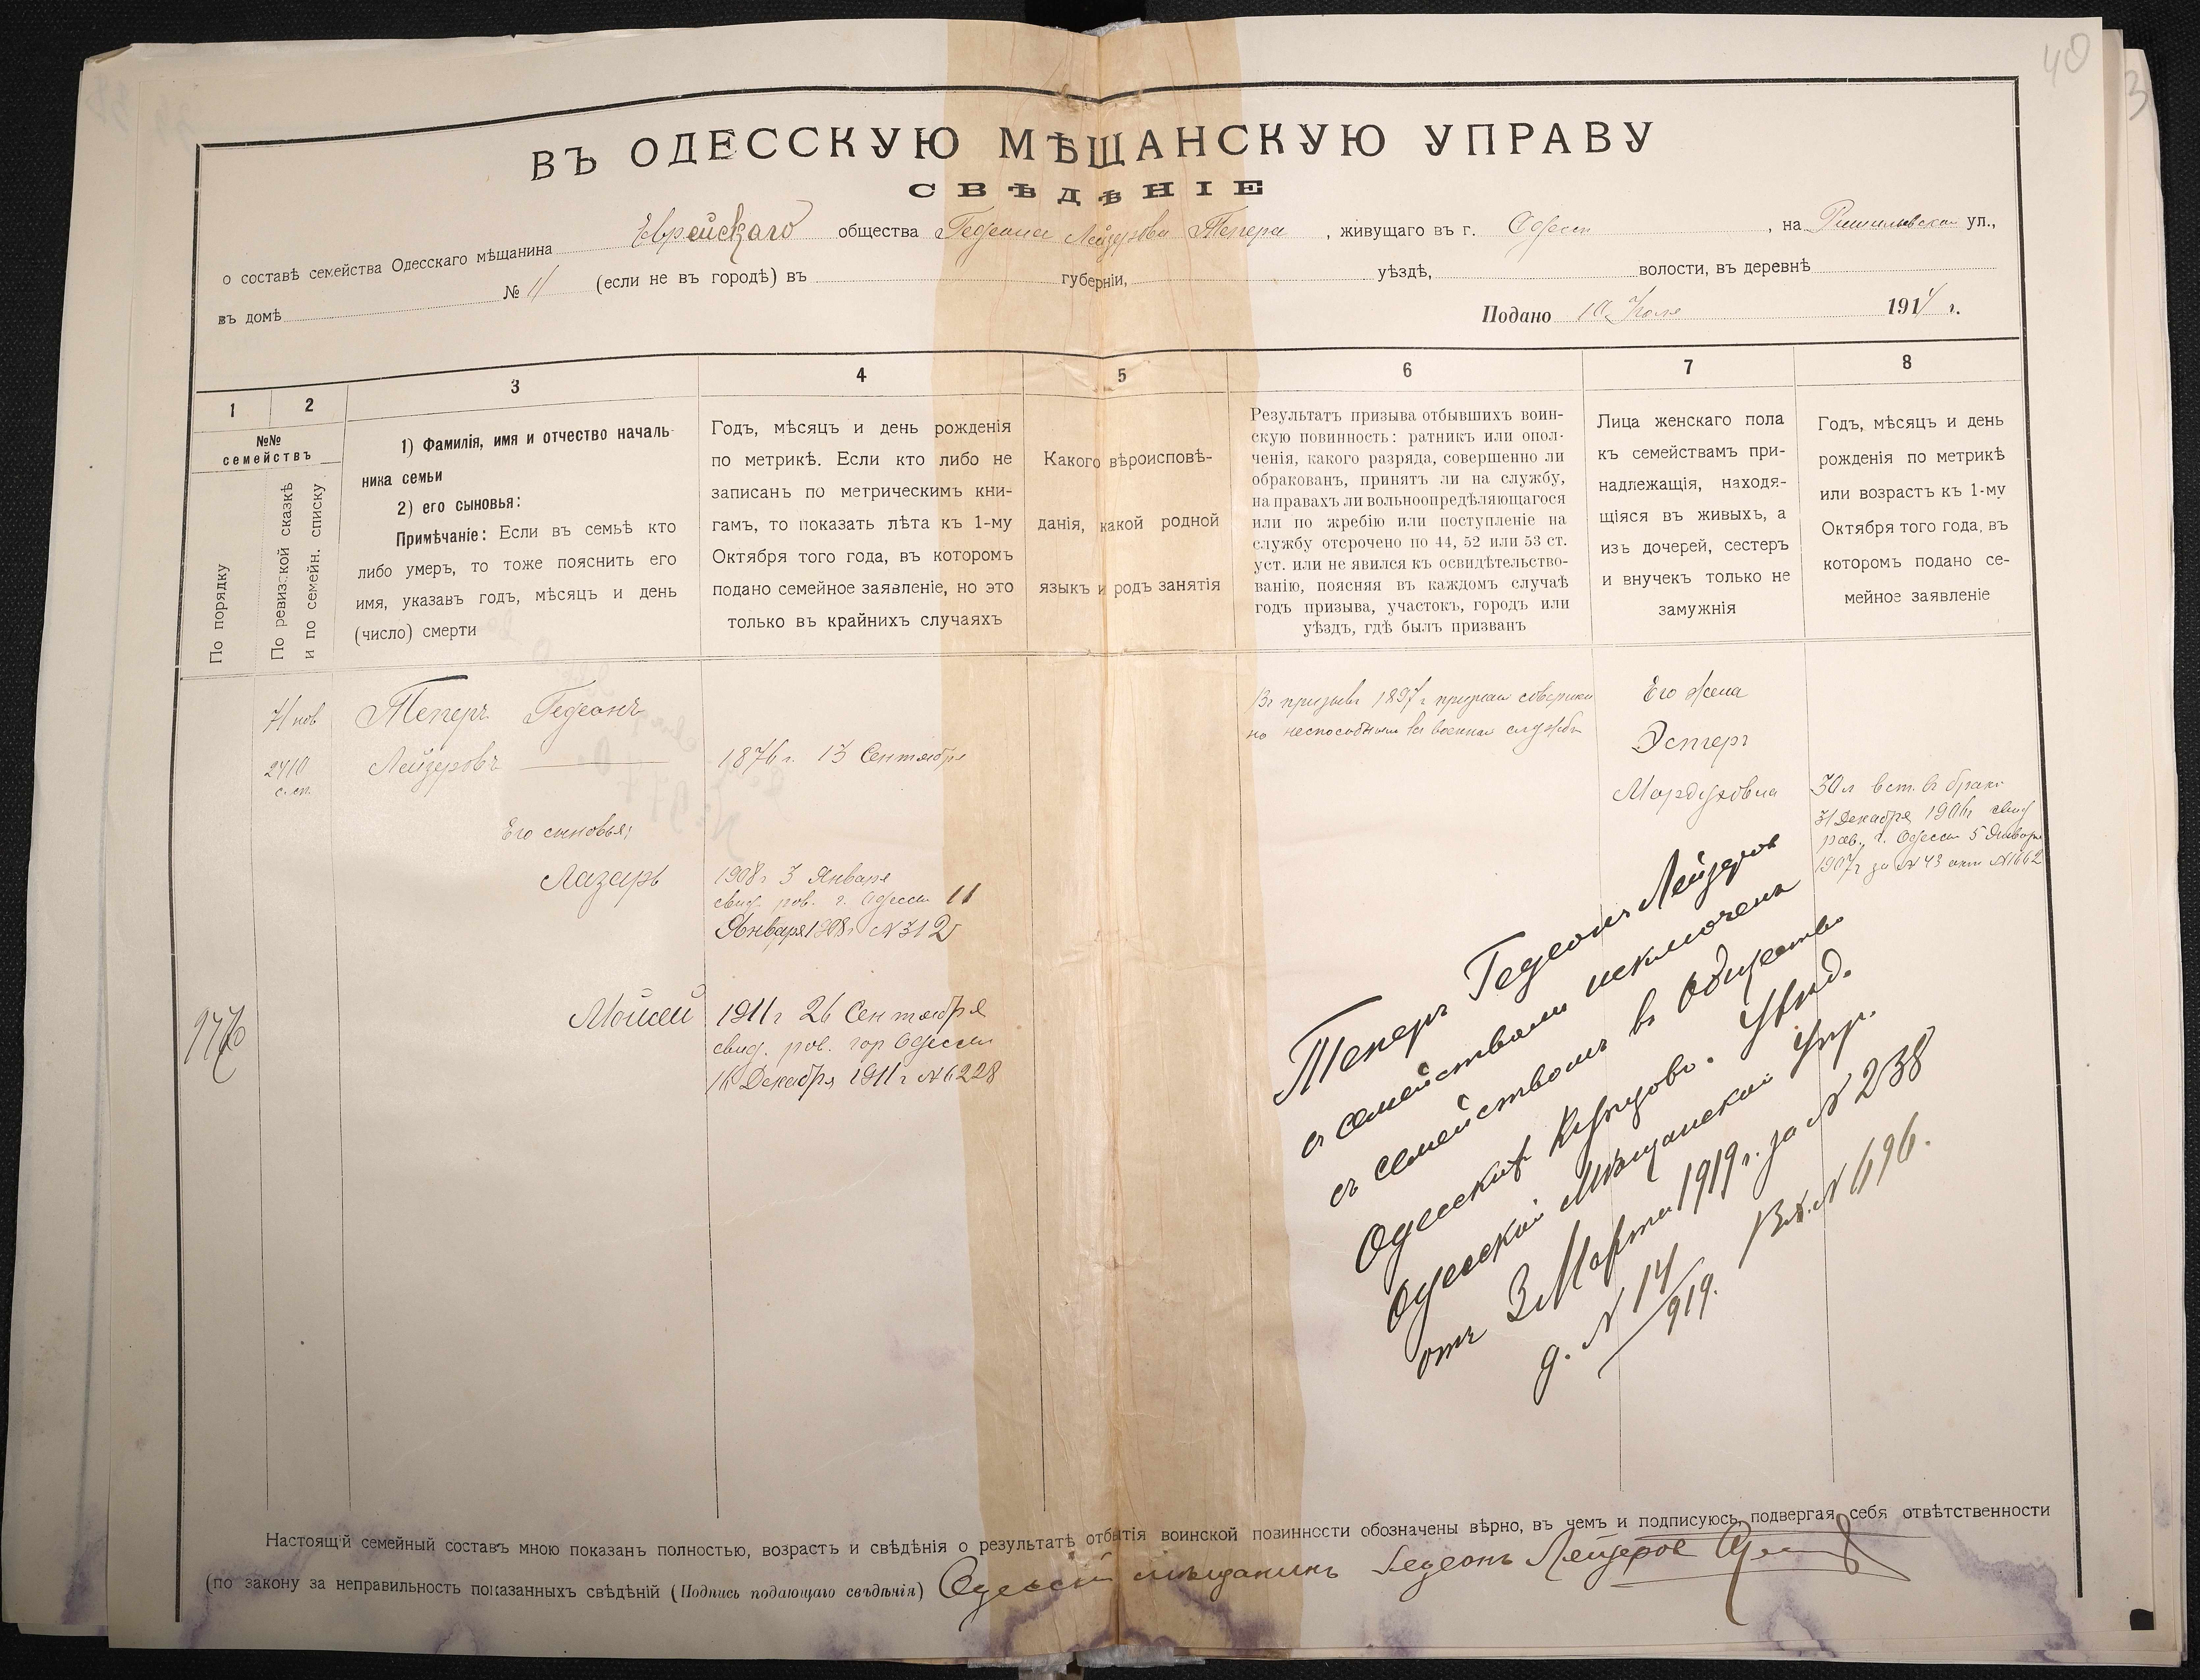 40
3
ВЪ ОДЕССКУЮ МѢЩАНСКУЮ УПРАВУ
СВѢДѢНІЕ
о составѣ семейства Одесскаго мѣщанина Еврейскаго общества Гедеона Лейзерова Тепера, живущаго въ г. Одессѣ, на Ришельевской ул.,
въ домѣ № 11 (если не въ городѣ) въ губерніи, уѣздѣ, волости, въ деревнѣ
Подано 10 1914 г.
1 2 3 4 5 6 7 8
№№
семействъ
По порядку
По ревизской сказкѣ
и по семейн. списку
1) Фамилія, имя и отчество началь-
ника семьи
2) его сыновья:
Примѣчаніе: Если въ семьѣ кто
либо умеръ, то тоже пояснить его
имя, указавъ годъ, мѣсяцъ и день
(число) смерти
Годъ, мѣсяцъ и день рожденія
по метрикѣ. Если кто либо не
записанъ по метрическимъ кни-
гамъ, то показать лѣта къ 1-му
Октября того года, въ которомъ
подано семейное заявленіе, но это
только въ крайнихъ случаяхъ
Какого вѣроисповѣ-
данія, какой родной
языкъ и родъ занятія
Результатъ призыва отбывшихъ воин-
скую повинность: ратникъ или опол-
ченія, какого разряда, совершенно ли
обракованъ, принятъ ли на службу,
на правахъ ли вольноопредѣляющагося
или по жребію или поступленіе на
службу отсрочено по 44, 52 или 53 ст.
уст. или не явился къ освидѣтельство-
ванію, поясняя въ каждомъ случаѣ
годъ призыва, участокъ, городъ или
уѣздъ, гдѣ былъ призванъ
Лица женскаго пола
къ семействамъ при-
надлежащія, находя-
щіяся въ живыхъ, а
изъ дочерей, сестеръ
и внучекъ только не
замужнія
Годъ, мѣсяцъ и день
рожденія по метрикѣ
или возрастъ къ 1-му
Октября того года, въ
которомъ подано се-
мейное заявленіе
71 нов
2410
с. сп.
Теперъ Гедеонъ
Лейзеровъ
1876 г. 13 Сентября
Его сыновья:
Лазарь
1908 г 3 Января
свид. рав. г. Одессы 11
Января 1908 г № 312
Мойсей
1911 г 26 Сентября
свид. рав. гор Одессы
16 Декабря 1911 г № 6228
9770
Въ призывъ 1897 г признан совершен
но неспособным къ военной службѣ
Его жена
Эстеръ
Мордуховна
30 л вст. въ бракъ
31 Декабря 1906 г свид
рав. г. Одессы 5 Января
1907 г за № 43 акт № 1662
Теперъ Гедеонъ Лейзеров
съ семействомъ исключенъ
съ семействомъ въ общество
Одесскихъ Купцовъ. Увѣд.
Одесской Мѣщанской Упр.
отъ 3 Марта 1919 г. за № 238
д. № 14/919. Вх. № 696.
Настоящій семейный составъ мною показанъ полностью, возрастъ и свѣдѣнія о результатѣ отбытія воинской повинности обозначены вѣрно, въ чемъ и подписуюсь, подвергая себя отвѣтственности
(по закону за неправильность показанныхъ свѣдѣній (Подпись подающаго свѣдѣнія) Одесскій мѣщанинъ Гедеонъ Лейзеров